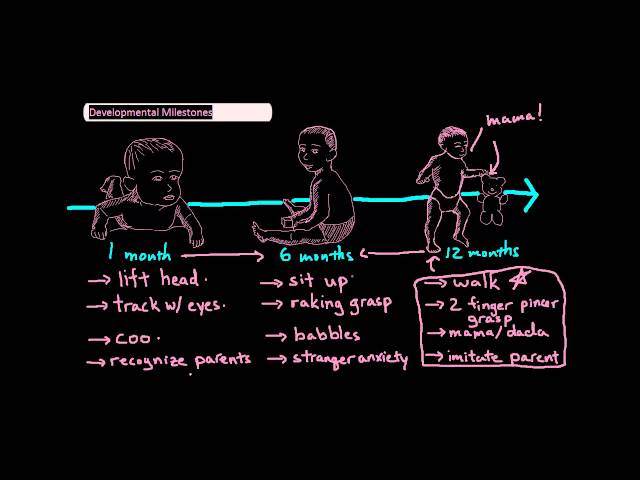 Developmental Milestones
mama!
1 month
6 months
12 months
lift head.
sit up
walk
track w/ eyes.
raking grasp
2 finger pincer
grasp
coo.
babbles
mama/dada
recognize parents
stranger anxiety
imitate parent